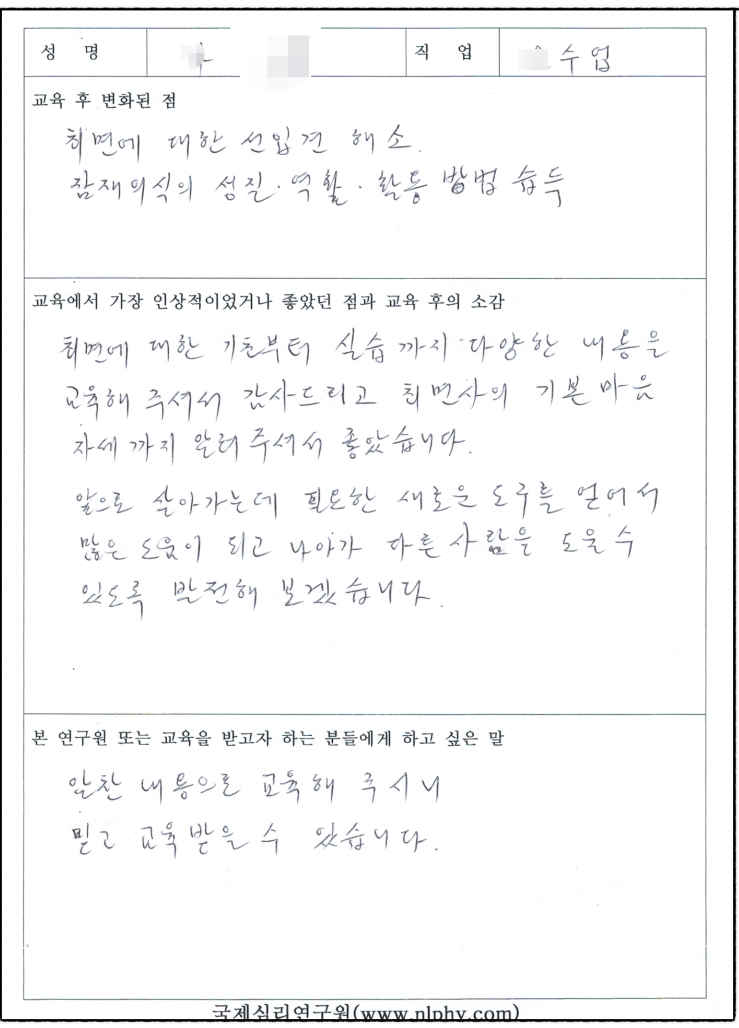 성 명
직 업 수업
교육 후 변화된 점
최면에 대한 선입견 해소.
잠재의식의 성질·역활·활용 방법 습득
교육에서 가장 인상적이었거나 좋았던 점과 교육 후의 소감
최면에 대한 기초부터 실습까지 다양한 내용을
교육해 주셔서 감사드리고 최면사의 기본마음
자세까지 알려주셔서 좋았습니다.
앞으로 살아가는데 필요한 새로운 도구를 얻어서
많은 도움이 되고 나아가 다른 사람을 도울 수
있도록 발전해 보겠습니다.
본 연구원 또는 교육을 받고자 하는 분들에게 하고 싶은 말
알찬 내용으로 교육해 주시니
믿고 교육받을 수 있습니다.
국제심리연구원(www.nlphy.com)